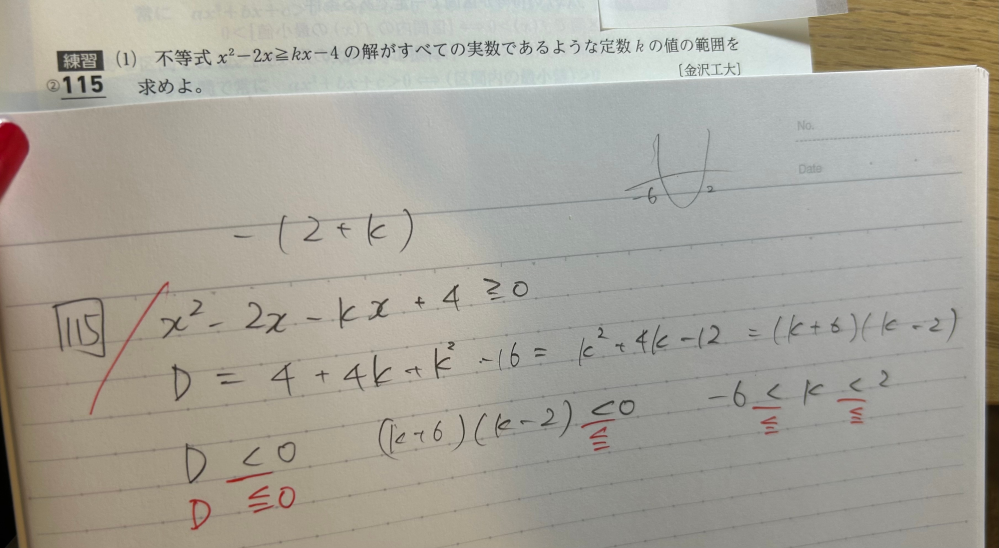 練習 (1) 不等式 x²−2x≧kx−4 の解がすべての実数であるような定数 k の値の範囲を
②115 求めよ。 [金沢工大]
No.
Date
-6 2
-(2+k)
115 x²-2x-kx+4≧0
D = 4+4k+k²-16 = k²+4k-12 = (k+6)(k-2)
D <0 (k+6)(k-2) <0 -6 < k < 2
≦ ≦ ≦
D ≦0